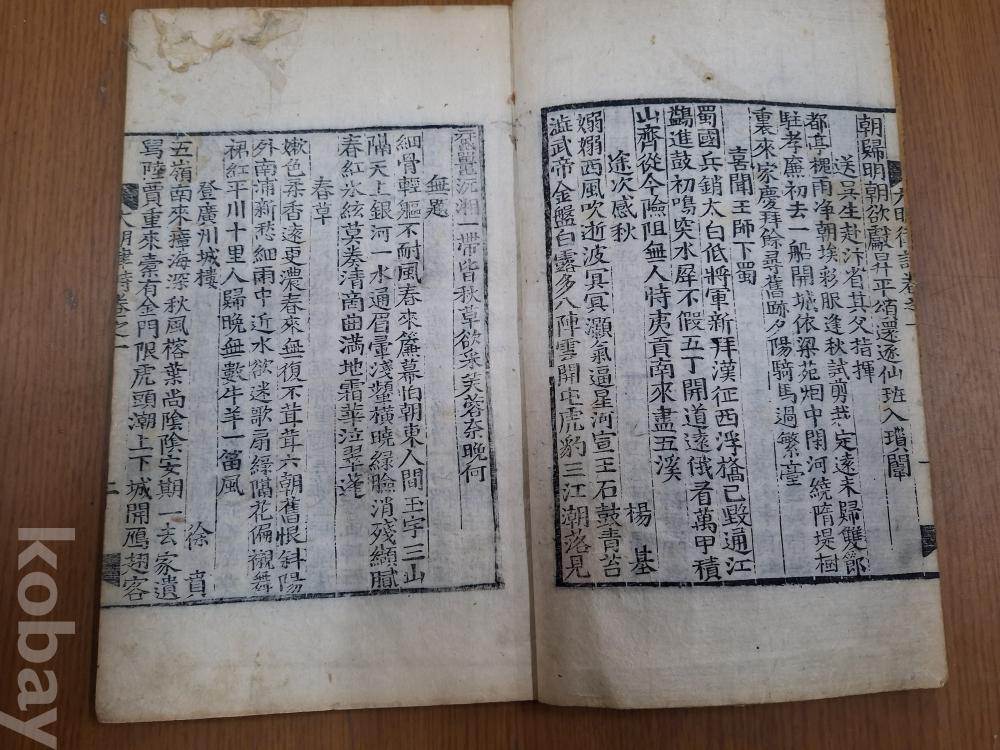 朝歸明朝欲獻昇平頌還逐仙班入瑣闈
送吳生赴汴省其父指揮
都亭槐雨净朝埃彩服逢秋試剪裁定遠未歸雙節
駐孝廉初去一船開城依梁苑烟中閉河繞隋堤樹
裏來家慶拜餘尋舊跡夕陽騎馬過繁臺
喜聞王師下蜀
蜀國兵銷太白低將軍新拜漢征西浮橋已毀通江
鷁進鼓初鳴突水犀不假五丁開道遠俄看萬甲積
山齊從今險阻無人恃夷貢南來盡五溪
途次感秋
楊基
嫋嫋西風吹逝波冥冥灝氣逼星河宣王石鼓青苔
澁武帝金盤白露多八陣雲開屯虎豹三江潮落見
黿鼉沅湘一帶皆秋草欲采芙蓉奈晚何
無題
細骨輕軀不耐風春來簾幕怕朝東人間玉字三山
隔天上銀河一水通眉暈淺顰橫曉綠臉消殘纈膩
春紅氷絃莫奏清商曲滿地霜華泣翠蓬
春草
嫰色柔香遠更濃春來無復不茸茸六朝舊恨斜陽
外南浦新愁細雨中近水欲迷歌扇綠隔花偏襯舞
裙紅平川十里人歸晚無數牛羊一笛風
登廣州城樓
徐賁
五嶺南來瘴海深秋風榕葉尚陰陰安期一去家遺
舄陸賈重來橐有金門限虎頭潮上下城開鴈翅客
大明律詩卷之一
二
kobay